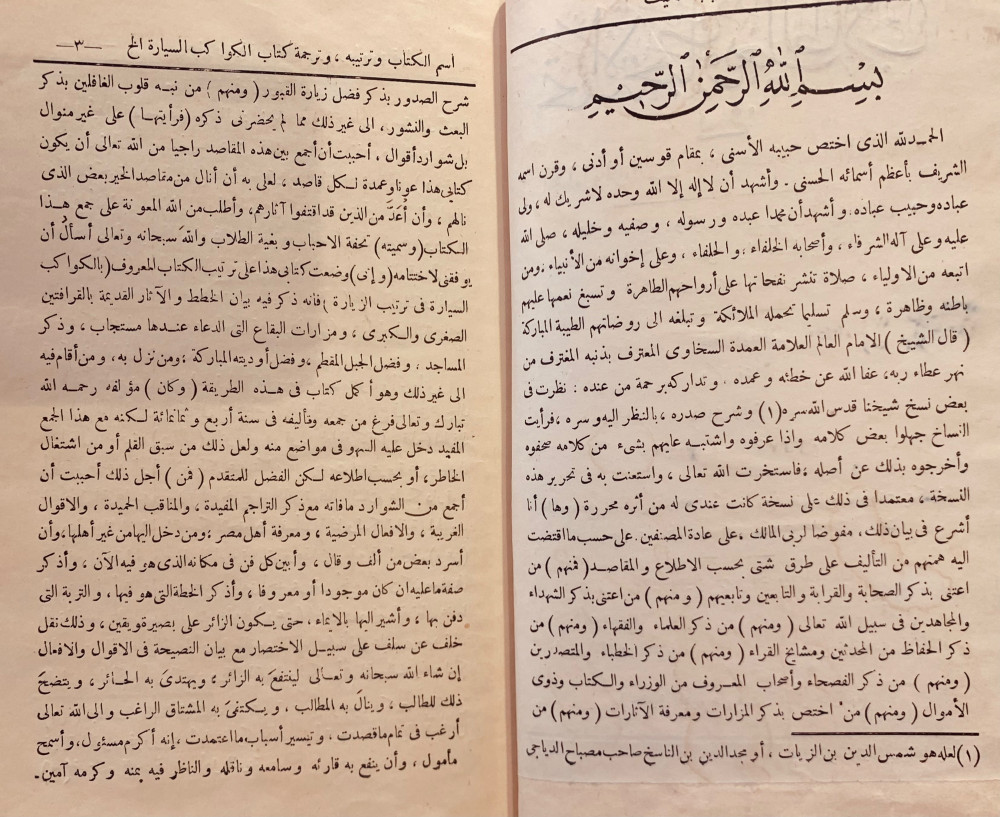 بسم الله الرحمن الرحيم
الحمد لله الذى اختص حبيبه الأسنى ، بمقام قوسين أو أدنى ، وقرن اسمه
الشريف بأعظم أسمائه الحسنى . وأشهد أن لا إله إلا الله وحده لا شريك له ، ولى
عباده وحبيب عباده . وأشهد أن محمدا عبده ورسوله ، وصفيه وخليله ، صلى الله
عليه وعلى آله الشرفاء ، وأصحابه الخلفاء ، والحلفاء ، وعلى إخوانه من الأنبياء ، ومن
اتبعه من الاولياء ، صلاة تنشر نفحاتها على أرواحهم الطاهرة وتسبغ نعمها عليهم
باطنه وظاهرة ، وسلم تسليما تحمله الملائكة وتبلغه الى روضاتهم الطيبة المباركة
( قال الشيخ ) الامام العالم العلامة العمدة السخاوى المعترف بذنبه المغترف من
نهر عطاء ربه ، عفا الله عن خطئه وعمده . وتداركه برحمة من عنده : نظرت فى
بعض نسخ شيخنا قدس الله سره (١) وشرح صدره ، بالنظر اليه وسره ، فرأيت
النساخ جهلوا بعض كلامه واذا عرفوه واشتبه عليهم بشىء من كلامه صحفوه
وأخرجوه بذلك عن أصله ، فاستخرت الله تعالى ، واستعنت به فى تحرير هذه
النسخة ، معتمدا فى ذلك على نسخة كانت عندى له من أثره محررة ( وها ) أنا
أشرع فى بيان ذلك ، مفوضا لربى المالك ، على عادة المصنفين على حسب ما اقتضت
اليه هممهم من التأليف على طرق شتى بحسب الاطلاع والمقاصد ( فمنهم ) من
اعتنى بذكر الصحابة والقرابة والتابعين وتابعيهم ( ومنهم ) من اعتنى بذكر الشهداء
والمجاهدين فى سبيل الله تعالى ( ومنهم ) من ذكر العلماء والفقهاء ( ومنهم ) من
ذكر الحفاظ من المحدثين ومشايخ القراء ( ومنهم ) من ذكر الخطباء والمتصدرين
( ومنهم ) من ذكر الفصحاء وأصحاب المعروف من الوزراء والكتاب وذوى
الأموال ( ومنهم ) من اختص بذكر المزارات ومعرفة الآثارات ( ومنهم ) من
(١) لعله هو شمس الدين بن الزيات ، أو مجد الدين بن الناسخ صاحب مصباح الدياجى
اسم الكتاب وترتيبه ، وترجمة كتاب الكواكب السيارة الخ —٣—
شرح الصدور بذكر فضل زيارة القبور ( ومنهم ) من نبه قلوب الغافلين بذكر
البعث والنشور ، الى غير ذلك مما لم يحضرنى ذكره ( فرأيتها ) على غير منوال
بل شوارد أقوال ، أحببت أن أجمع بين هذه المقاصد راجيا من الله تعالى أن يكون
كتابى هذا عونا وعمدة لكل قاصد ، لعلى به أن أنال من مقاصد الخير بعض الذى
نالهم ، وأن أُعَدَّ من الذين قد اقتفوا آثارهم ، وأطلب من الله المعونة على جمع هذا
الكتاب ( وسميته ) تحفة الاحباب وبغية الطلاب والله سبحانه وتعالى أسألُ أن
يوفقنى لاختتامه ( وإنى ) وضعت كتابى هذا على ترتيب الكتاب المعروف ( بالكواكب
السيارة فى ترتيب الزيارة ) فانه ذكر فيه بيان الخطط والآثار القديمة بالقرافتين
الصغرى والكبرى ، ومزارات البقاع التى الدعاء عندها مستجاب ، وذكر
المساجد ، وفضل الجبل المقطم ، وفضل أوديته المباركة ، ومن نزل به ، ومن أقام فيه
الى غير ذلك وهو أكمل كتاب فى هذه الطريقة ( وكان ) مؤلفه رحمه الله
تبارك وتعالى فرغ من جمعه وتأليفه فى سنة أربع وثمانمائة لكنه مع هذا الجمع
المفيد دخل عليه السهو فى مواضع منه ولعل ذلك من سبق القلم أو من اشتغال
الخاطر ، أو بحسب اطلاعه لكن الفضل للمتقدم ( فمن ) أجل ذلك أحببت أن
أجمع من الشوارد ما فاته مع ذكر التراجم المفيدة ، والمناقب الحميدة ، والاقوال
الغريبة ، والافعال المرضية ، ومعرفة أهل مصر ، ومن دخل اليها من غير أهلها ، وأن
أسرد بعض من ألف وقال ، وأبين كل فن فى مكانه الذى هو فيه الآن ، وأذكر
صفة ما عليه ان كان موجودا أو معروفا ، وأذكر الخطة التى هو فيها ، والتربة التى
دفن بها ، وأشير اليها بالايماء ، حتى يكون الزائر على بصيرة ويقين ، وذلك نقل
خلف عن سلف على سبيل الاختصار مع بيان النصيحة فى الاقوال والافعال
إن شاء الله سبحانه وتعالى لينتفعَ به الزائر ، ويهتدى به الحائر ، ويتضحَ
ذلك للطالب ، وينالَ به المطالب ، ويكتفىَ به المشتاق الراغب والى الله تعالى
أرغب فى تمام ما قصدت ، وتيسير أسباب ما اعتمدت ، إنه أكرم مسئول ، وأسمح
مأمول ، وأن ينفع به قارئه وسامعه وناقله والناظر فيه بمنه وكرمه آمين .